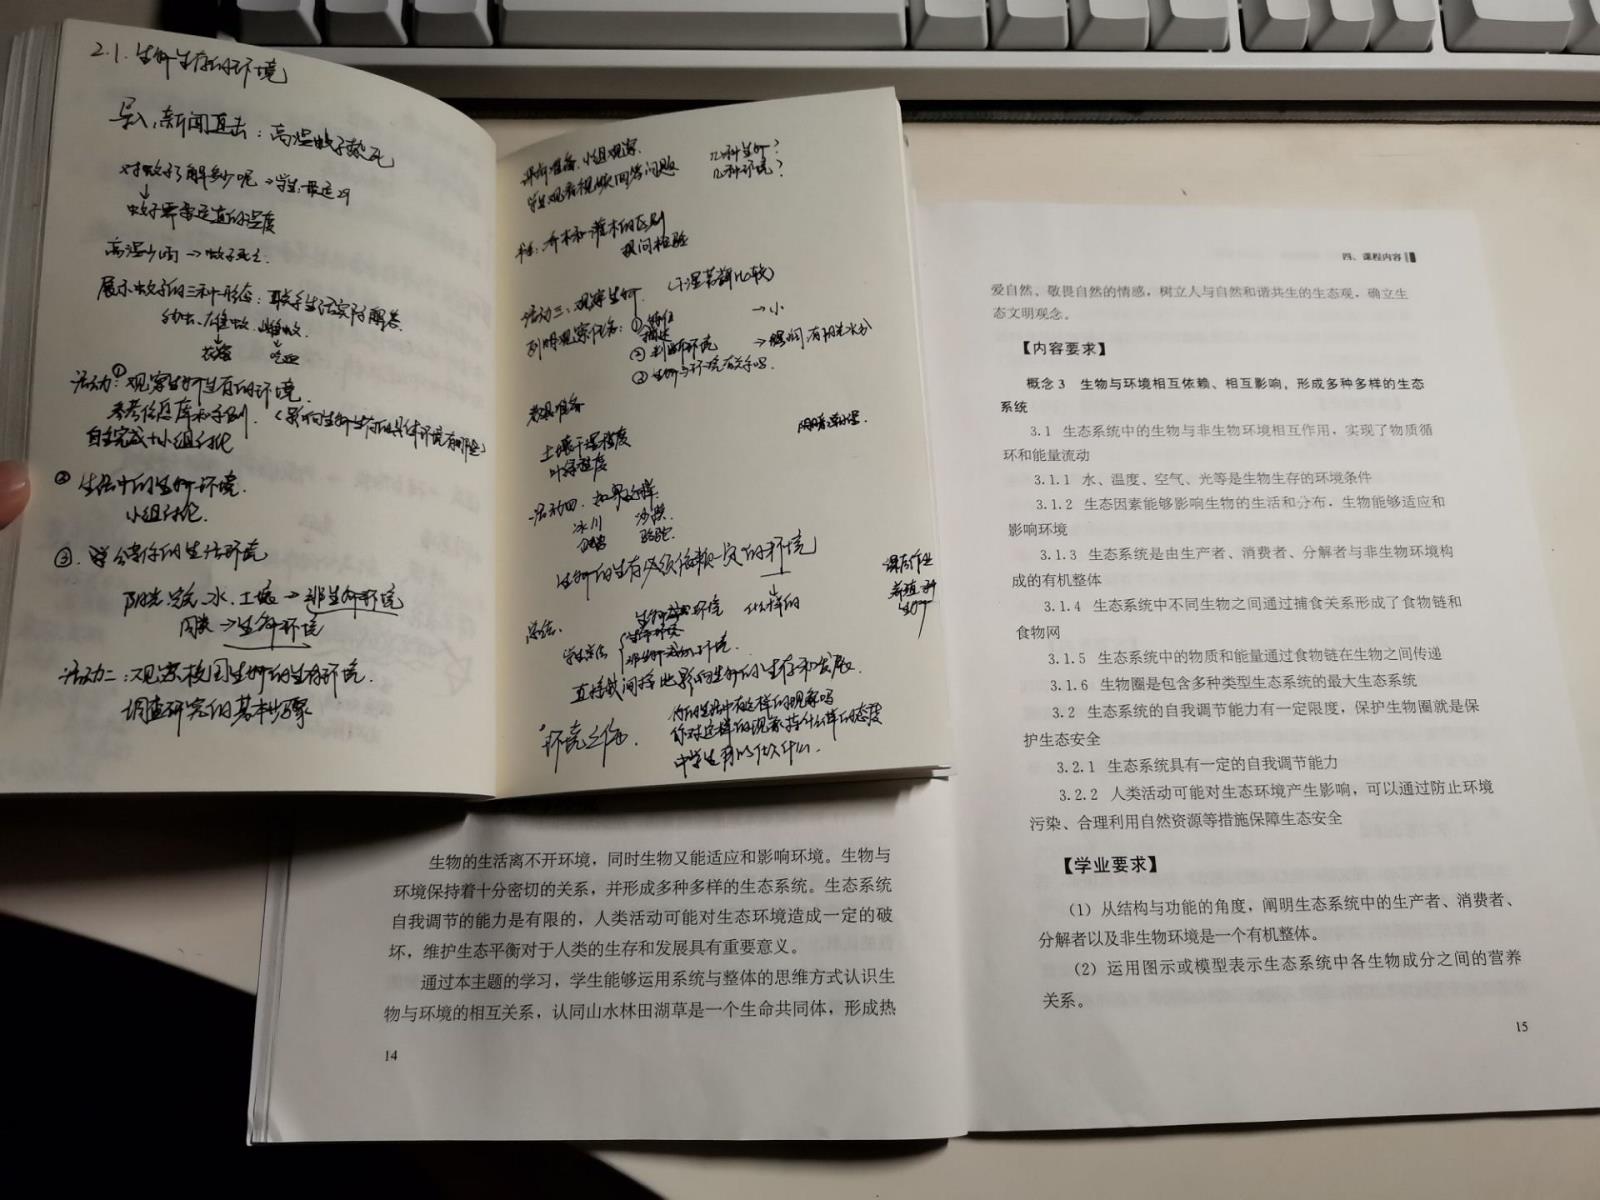 2.1. 生物生存的环境
导入:新闻直击:高温蚊子热死
对蚊子了解多少呢
蚊子需要适宜的温度
高温少雨→蚊子死亡.
展示蚊子的三种形态:联系生活实际解答.
幼虫、雄蚊、雌蚊.
吃血
活动①:观察生物生存的环境.
自主完成+小组讨论
② 生活中的生物环境.
小组讨论.
③. 的生活环境
阳光、空气、水、土壤→非生物环境
同类→生物环境
活动二:观察校园生物的生存环境.
调查研究的基本步骤
课前准备、小组观察. 几种生物?
学生观看视频回答问题 几种环境?
乔木和灌木的区别
提问检验
活动三:观察生物. (干湿苔藓比较)
列明观察任务:① 特征 →小
描述
② 判断环境 →湿润、有阳光水分
③ 生物与环境有关系吗.
教具准备
土壤干湿程度
叶绿程度
活动四.
冰川 沙漠.
企鹅 骆驼.
生物的生存必须依赖一定的环境
课后作业
养殖一种
生物
总结. 生物 环境 什么样的
非生物 环境.
直接或间接地影响生物的生存和发展.
你的生活中有这样的现象吗
你对这样的现象持什么样的态度
中学生可以做什么.
生物的生活离不开环境,同时生物又能适应和影响环境。生物与
环境保持着十分密切的关系,并形成多种多样的生态系统。生态系统
自我调节的能力是有限的,人类活动可能对生态环境造成一定的破
坏,维护生态平衡对于人类的生存和发展具有重要意义。
通过本主题的学习,学生能够运用系统与整体的思维方式认识生
物与环境的相互关系,认同山水林田湖草是一个生命共同体,形成热
14
四、课程内容
爱自然、敬畏自然的情感,树立人与自然和谐共生的生态观,确立生
态文明观念。
【内容要求】
概念3 生物与环境相互依赖、相互影响,形成多种多样的生态
系统
3.1 生态系统中的生物与非生物环境相互作用,实现了物质循
环和能量流动
3.1.1 水、温度、空气、光等是生物生存的环境条件
3.1.2 生态因素能够影响生物的生活和分布,生物能够适应和
影响环境
3.1.3 生态系统是由生产者、消费者、分解者与非生物环境构
成的有机整体
3.1.4 生态系统中不同生物之间通过捕食关系形成了食物链和
食物网
3.1.5 生态系统中的物质和能量通过食物链在生物之间传递
3.1.6 生物圈是包含多种类型生态系统的最大生态系统
3.2 生态系统的自我调节能力有一定限度,保护生物圈就是保
护生态安全
3.2.1 生态系统具有一定的自我调节能力
3.2.2 人类活动可能对生态环境产生影响,可以通过防止环境
污染、合理利用自然资源等措施保障生态安全
【学业要求】
(1)从结构与功能的角度,阐明生态系统中的生产者、消费者、
分解者以及非生物环境是一个有机整体。
(2)运用图示或模型表示生态系统中各生物成分之间的营养
关系。
15